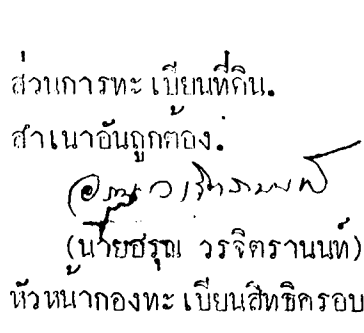 ส่วนการทะเบียนที่ดิน.
สำเนาอันถูกต้อง.
(นายอรุณ วรจิตรานนท์)
หัวหน้ากองทะเบียนสิทธิครอบ